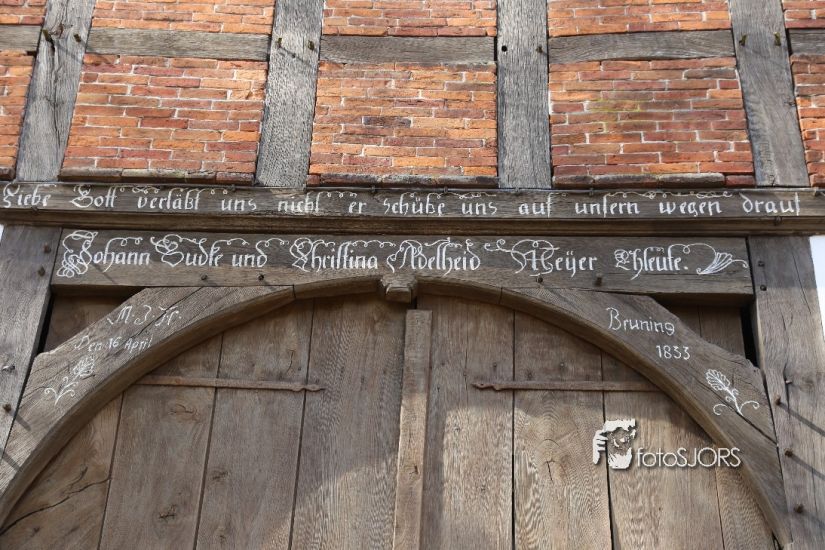 Liebe Gott verläßt uns nicht er schüße uns auf unsern wegen drauf
Johann Sudke und Christina Adelheid Meÿer Ehleute.
M. J. H. Bruning
Den 16 April 1833
fotoSJORS